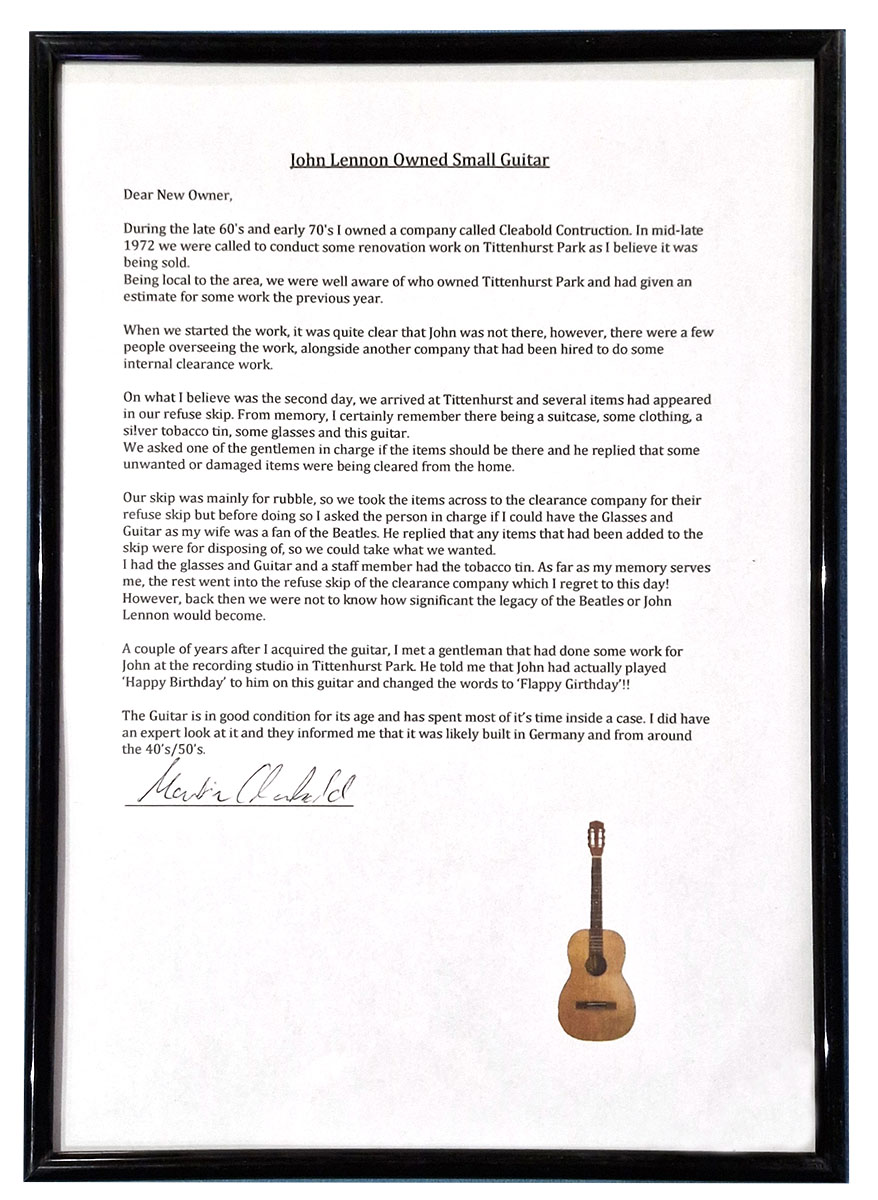 John Lennon Owned Small Guitar
Dear New Owner,
During the late 60's and early 70's I owned a company called Cleabold Contruction. In mid-late
1972 we were called to conduct some renovation work on Tittenhurst Park as I believe it was
being sold.
Being local to the area, we were well aware of who owned Tittenhurst Park and had given an
estimate for some work the previous year.
When we started the work, it was quite clear that John was not there, however, there were a few
people overseeing the work, alongside another company that had been hired to do some
internal clearance work.
On what I believe was the second day, we arrived at Tittenhurst and several items had appeared
in our refuse skip. From memory, I certainly remember there being a suitcase, some clothing, a
silver tobacco tin, some glasses and this guitar.
We asked one of the gentlemen in charge if the items should be there and he replied that some
unwanted or damaged items were being cleared from the home.
Our skip was mainly for rubble, so we took the items across to the clearance company for their
refuse skip but before doing so I asked the person in charge if I could have the Glasses and
Guitar as my wife was a fan of the Beatles. He replied that any items that had been added to the
skip were for disposing of, so we could take what we wanted.
I had the glasses and Guitar and a staff member had the tobacco tin. As far as my memory serves
me, the rest went into the refuse skip of the clearance company which I regret to this day!
However, back then we were not to know how significant the legacy of the Beatles or John
Lennon would become.
A couple of years after I acquired the guitar, I met a gentleman that had done some work for
John at the recording studio in Tittenhurst Park. He told me that John had actually played
‘Happy Birthday’ to him on this guitar and changed the words to ‘Flappy Girthday’!!
The Guitar is in good condition for its age and has spent most of it’s time inside a case. I did have
an expert look at it and they informed me that it was likely built in Germany and from around
the 40’s/50’s.
Martin